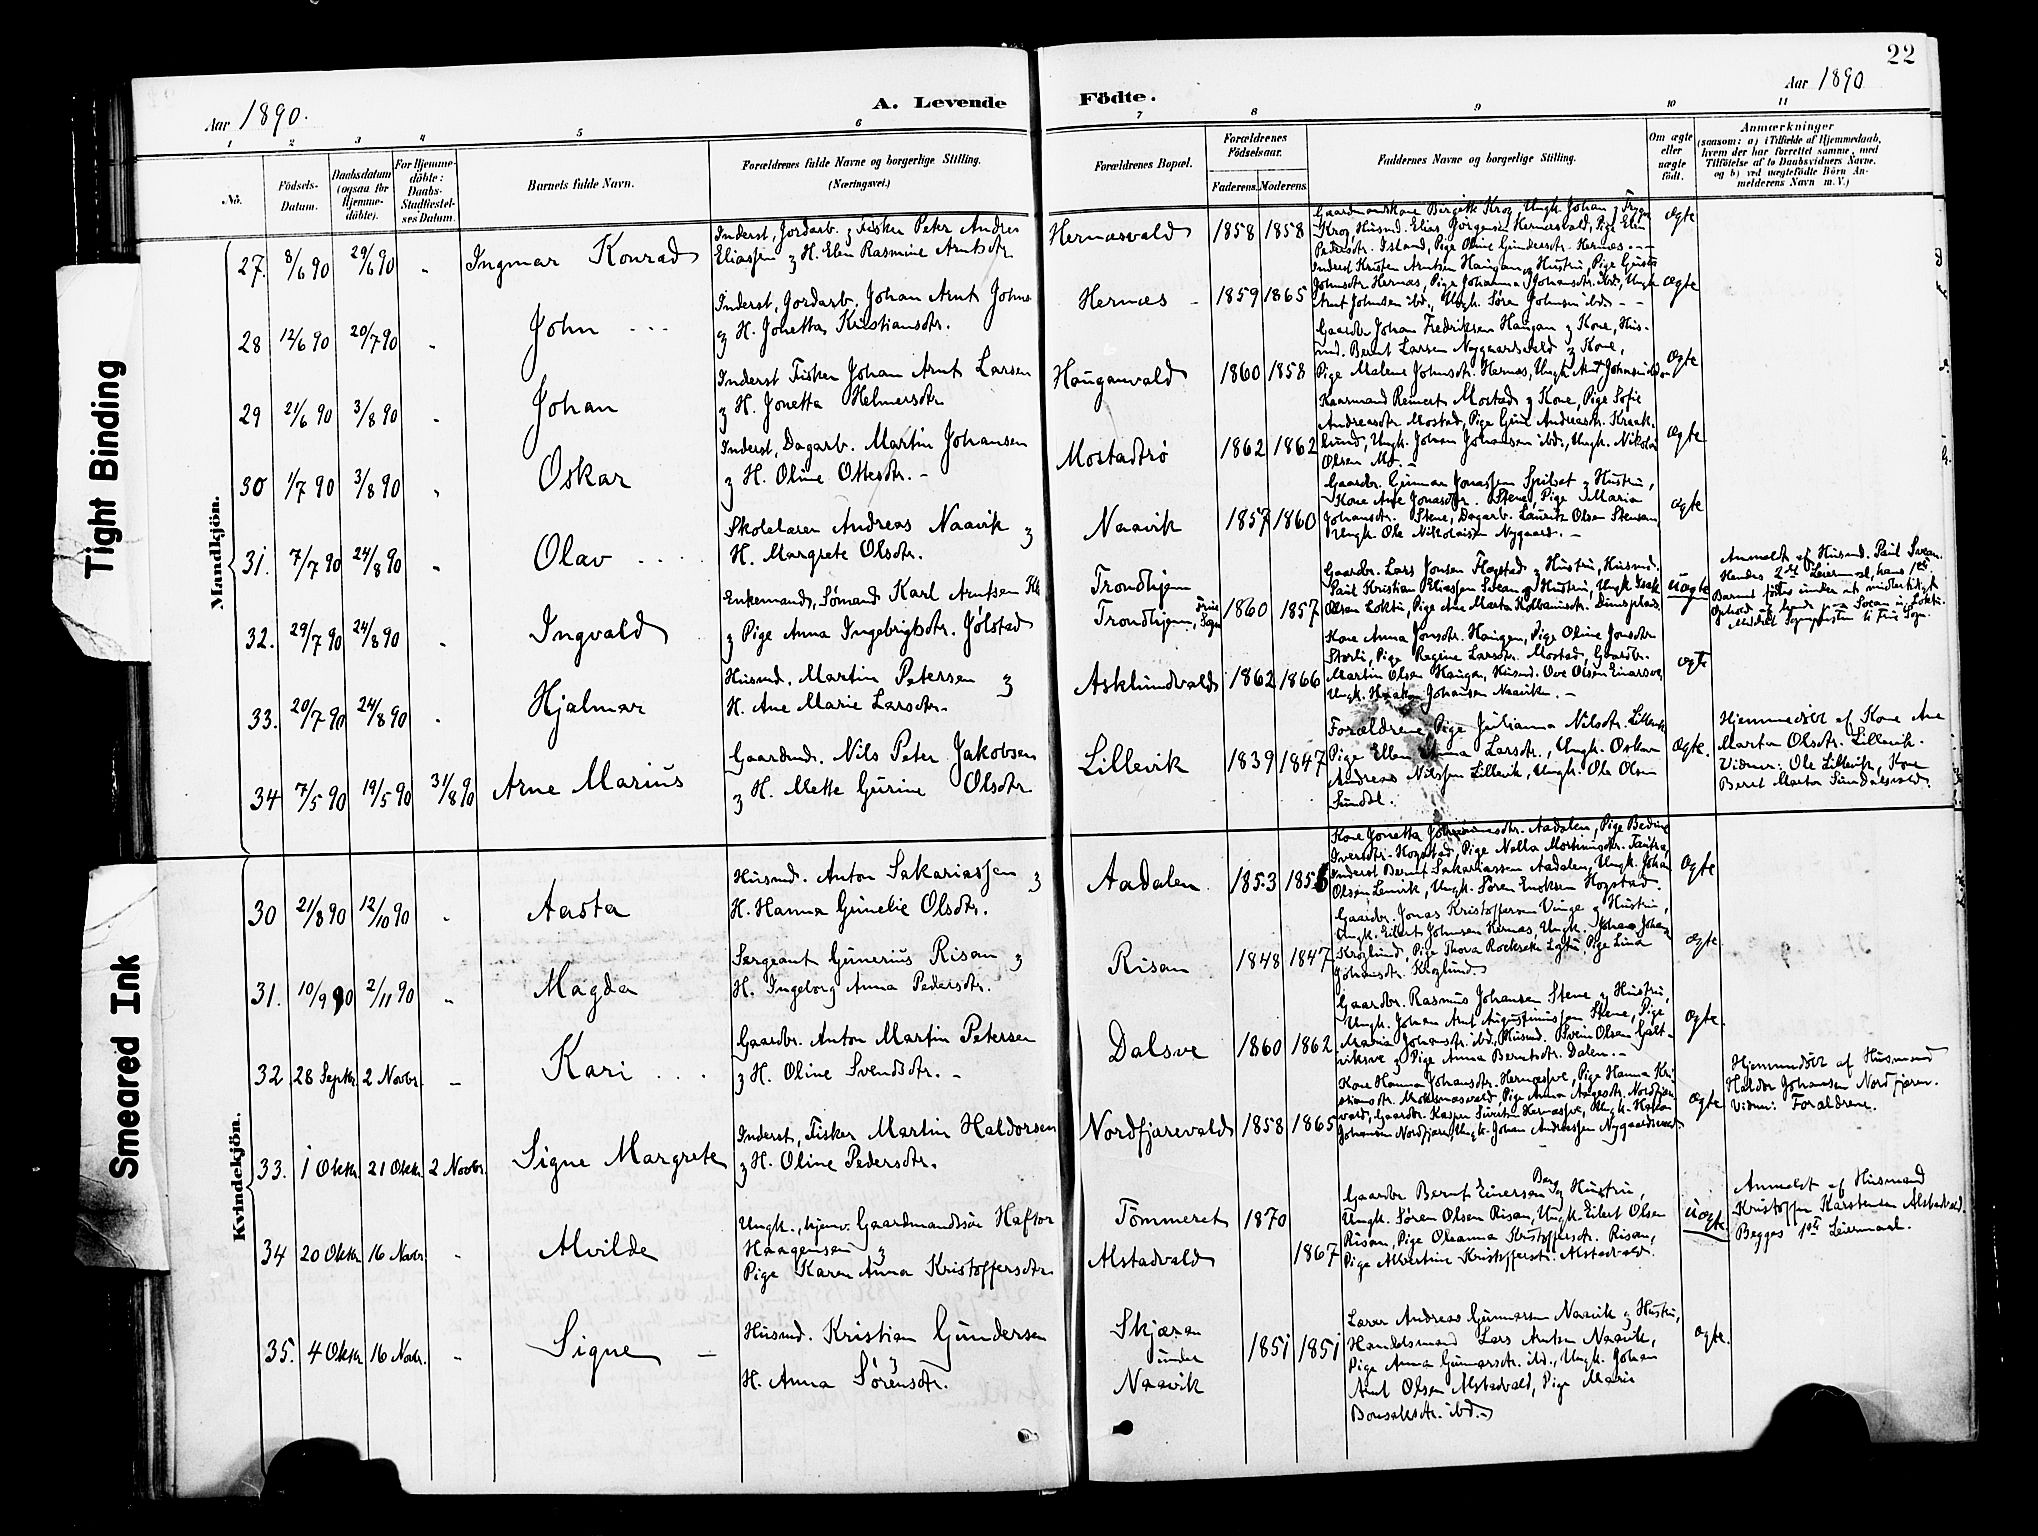 22
Aar 1890.
A. Levende
Födte.
Aar 1890
1
2
3
4
5
6
7
8
9
10
11
No.
Födsels-
Datum.
Daabsdatum
(ogsaa for
Hjemme-
döbte).
For Hjemme-
döbte:
Daabs-
Stadfæstel-
ses Datum.
Barnets fulde Navn.
Forældrenes fulde Navne og borgerlige Stilling.
(Næringsvei.)
Forældrenes Bopæl.
Forældrenes
Födselsaar.
Faderens.
Moderens.
Faddernes Navne og borgerlige Stilling.
Om ægte
eller
uægte
födt.
Anmærkninger
(saasom: a) i Tilfælde af Hjemmedaab,
hvem der har forrettet samme, med
Tilföielse af to Daabsvidners Navne,
og b) ved uægtefödte Börn An-
melderens Navn m. V.)
Tight Binding
Smeared Ink
Mandkjön.
27. 8/6 90 29/6 90 " Ingmar Konrad
Inderst, Jordarb. & Fisker Peter Andreas
Eliassen & H. Elen Rasmine Arntsdtr
Hernæsvald 1858 1858
Gaardmandskone Birgitte Krog, Ungk. Johan &
Krog, Husmd. Elias Jörgensen Hernæsvald, Pige Elen
Pedersdtr. Island, Pige Oline Gundersdtr. Hernæs.
ægte
28 12/6 90 20/7 90 " John
Inderst, Jordarb. Johan Arnt Johns
& H. Jonetta Kristiansdtr.
Hernæs 1859 1865
Inderst Kristen Arntsen Haugan & Hustru, Pige
Johnsdtr Hernæs, Pige Johanna Johansdtr. ibd., Ungk
Arnt Johnsen ibd., Ungk. Sören Johnsen ibd.
ægte
29 21/6 90 3/8 90 " Johan
Inderst Fisker Johan Arnt Larsen
& H. Jonetta Helmersdtr
Hauganvald 1860 1858
Gaardbr Johan Fredriksen Haugan & Kone, Hus-
md. Bernt Larsen Nygaardsvald & Kone,
Pige Malene Johnsdtr. Hernæs, Ungk Arnt Johnsen
ægte
30 1/7 90 3/8 90 " Oskar
Inderst, Dagarb. Martin Johansen
& H. Oline Ottesdtr.
Mostadtrö 1862 1862
Kaarmand Reinert Mostad & Kone, Pige Sofie
Andreasdtr Mostad, Pige Andreasdtr. Kraak-
lund, Ungk. Johan Johansen ibd., Ungk. Nikolai
Olsen Mo.
ægte
31. 7/7 90 24/8 90 " Olav
Skolelærer Andreas Naavik &
H. Margrete Olsdtr.
Naavik 1857 1860
Gaardbr. Gunnar Jonassen Spilset & Hustru,
Kone Ane Jonasdtr. Stene, Pige Maria
Johansdtr. Stene, Dagarb. Laurits Olsen Stensen
Ungk. Ole Nikolaisen Nygaard.
ægte
32. 29/7 90 24/8 90 " Ingvald
Enkemand, Sömand Karl Arntsen
& Pige Anna Ingebrigtsdtr. Jölstad
Trondhjem
Trondhjem, Frue Sogn 1860 1857
Gaardbr. Lars Jonsen Flagstad & Hustru, Husmd.
Paul Kristian Eliassen Svean & Hustru, Ungk Isak
Olsen Loktu, Pige Ane Marta
uægte
Anmeldt af Husmd. Paul Svean.
Hendes 2det Leiermaal, hans 1ste
Barnet födtes under et midlertidigt
Ophold
33. 20/7 90 24/8 90 " Hjalmar
Husmd. Martin Petersen &
H. Ane Marie Larsdtr.
Asklundvald 1862 1866
Kone Anna Jonsdtr. Haugan, Pige Oline Jonsdtr
Störli, Pige Regine Larsdtr. Mostad, Gaardbr.
Martin Olsen Haugan, Husmd. Ove Olsen Einarsve,
Ungk. Haakon Johansen Naavik.
ægte
34 7/5 90 19/5 90 31/8 90 Arne Marius
Gaardmd. Nils Peter Jakobsen
& H. Mette Gurine Olsdtr
Lillevik 1839 1847
Forældrene, Pige Julianna Nilsdtr. Lillevik
Pige Ellen Anna Larsdtr., Ungk. Oskar
Andreas Nilssen Lillevik, Ungk. Ole Olsen
Sundal.
ægte.
Hjemmedöbt af Kone Ane
Marta Olsdtr. Lillevik.
Vidner: Ole Lillevik, Kone
Beret Marta Sundalsvald.
Kvindekjön.
30 21/8 90 12/10 90 " Aasta
Husmd. Anton Sakariassen &
H. Hanna Gunelie Olsdtr.
Aadalen 1853 1856
Kone Jonetta Aadalen, Pige Bedine
Iversdtr. Hogstad, Pige Nella Martinusdtr.
Inderst Bernt Sakariassen Aadalen, Ungk. Johan
Olsen Lenvik, Ungk. Sören Enoksen Hogstad.
ægte
31. 10/9 90 2/11 90 " Magda
Sergeant Gunerius Risan &
H. Ingeborg Anna Pedersdtr.
Risan 1848 1847
Gaardbr. Jonas Kristoffersen Vinge & Hustru,
Ungk. Eilert Johnsen Hernæs, Ungk. Johan Johans
Kroglund, Pige Thora Lina
Johansdtr. Kroglund.
ægte
32 28 Septbr. 2 Novbr. " Kari
Gaardbr. Anton Martin Petersen
& H. Oline Svendsdtr.
Dalsve 1860 1862
Gaardbr. Rasmus Johansen Stene & Hustru,
Ungk. Johan Arnt Augustinussen Stene, Pige
Maria Johansdtr. ibd., Husmd. Svein Olsen Galt-
viksve & Pige Anna Berntsdtr. Dalen.
ægte
33. 1 Oktbr 21 Oktbr. 2 Novbr. Signe Margrete
Inderst, Fisker Martin Haldorsen
& H. Oline Pedersdtr.
Nordfjærevald 1858 1865
Kone Hanna Johansdtr. Hernæsve, Pige Hanna Kri
stiansdtr. Moksnæsvald, Pige Anna Aagesdtr. Nordfjær
vald, Gaardbr. Kasper Hernæsve, Ungk. Haldor
Johansen Nordfjære, Ungk. Johan Andreassen Nygaardsvald
ægte
Hjemmedöbt af Husmand
Haldor Johansen Nordfjæren.
Vidner: Forældrene.
34 20 Oktbr 16 Novbr " Alvilde
Ungk., hjemv. Gaardmandssön Haftor
Haagensen &
Pige Karen Anna Kristoffersdtr
Tömmeret 1870
Alstadvald 1867
Gaardbr Bernt Einersen Berg & Hustru,
Ungk. Sören Olsen Risan, Ungk. Eilert Olsen
Risan, Pige Oleanna Kristoffersdtr. Risan,
Pige Albertine Kristoffersdtr. Alstadvald.
uægte
Anmeldt af Husmand
Kristoffer Karstensen Alstadvald.
Begges 1ste Leiermaal.
35. 4 Oktbr 16 Novbr. " Signe
Husmd. Kristian Gundersen
&
H. Anna Sörensdtr.
Skjæran
under
Naavik 1851 1851
Lærer Andreas Gunnarsen Naavik & Hustru,
Handelsmand Lars Arntsen Naavik,
Pige Anna Gunnarsdtr. ibd., Ungk. Johan
Arnt Olsen Alstadvald, Pige Marie
Bonsaksdtr. ibd.
ægte.